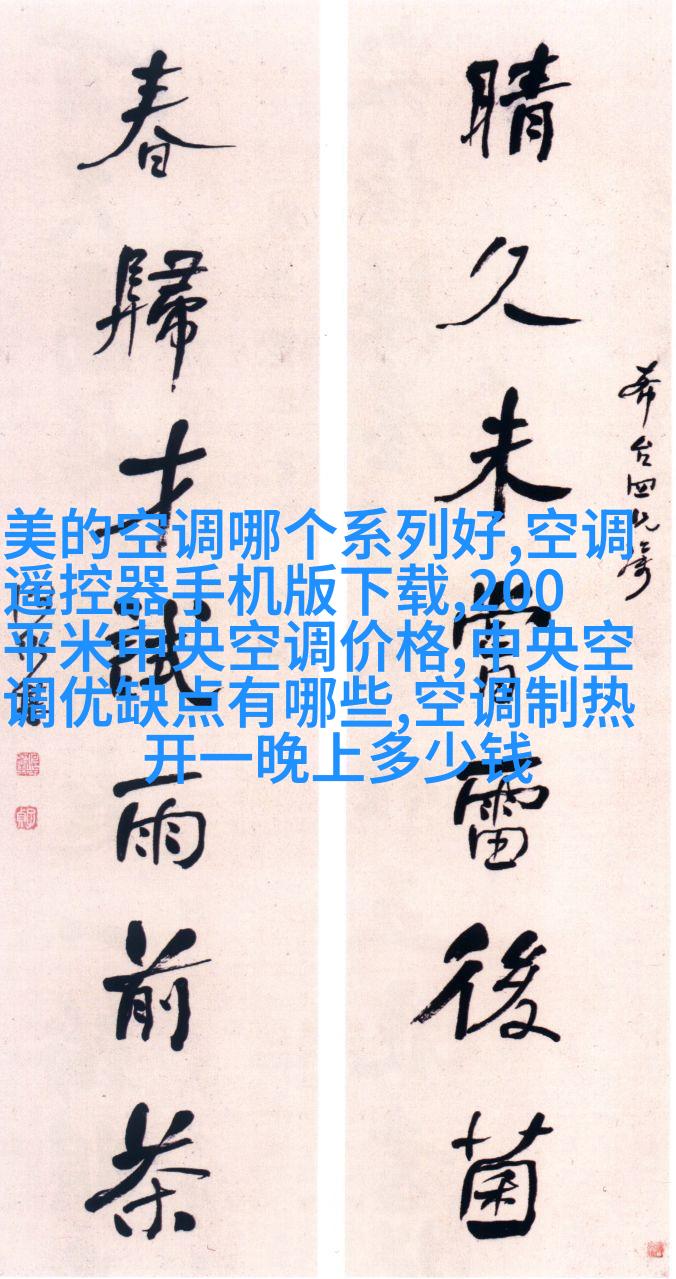 晴久未嘗雷後菌
春歸才試雨前茶
美的空调哪个系列好,空调
遥控器手机版下载,200
平米中央空调价格,中央空
调优缺点有哪些,空调制热
开一晚上多少钱